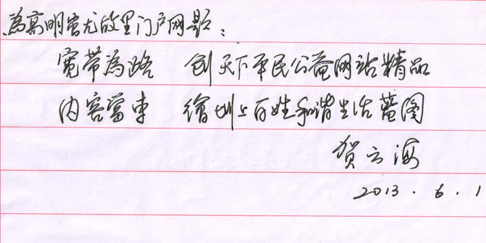 为高明蚩尤故里门户网题：
宽带為路 创天下平民公益网站精品
内容當車 繪出百姓和谐生活蓝图
贺云海
2013.6.1